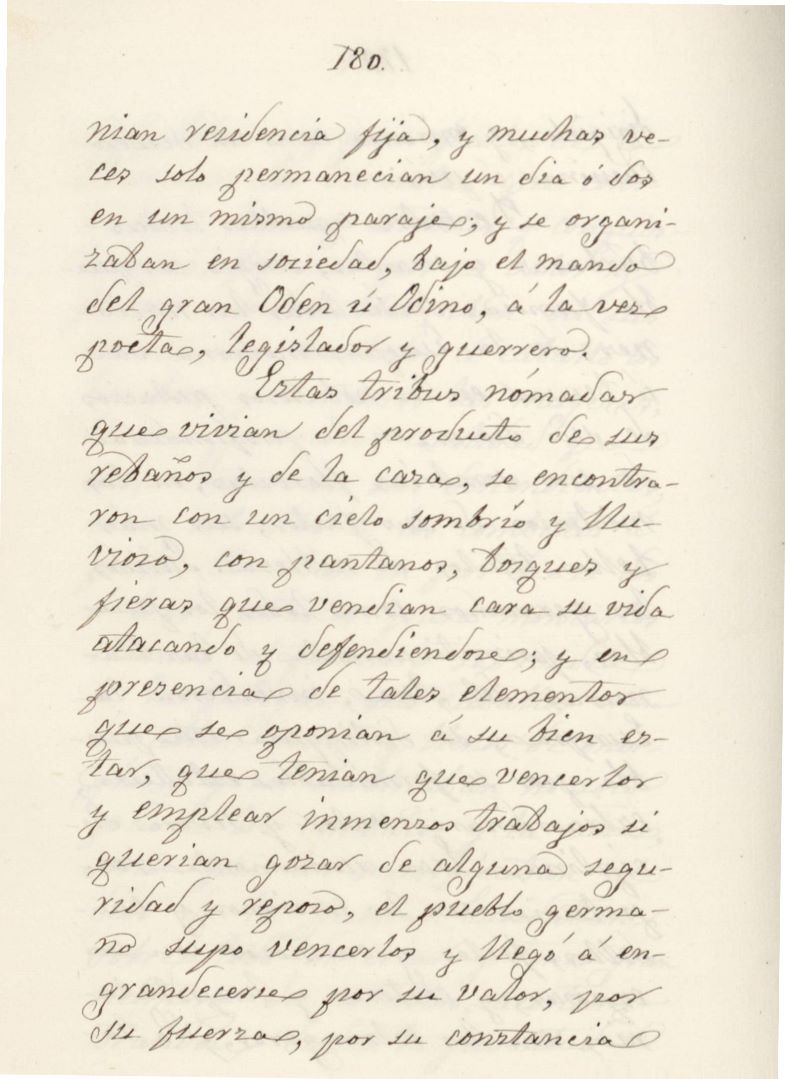 180.
nian residencia fija, y muchas ve-
ces solo permanecian un dia ó dos
en un mismo paraje; y se organi-
zaban en sociedad, bajo el mando
del gran Oden ú Odino, á la vez
poeta, legislador y guerrero.
Estas tribus nómadas
que vivian del producto de sus
rebaños y de la caza, se encontra-
ron con un cielo sombrío y llu-
vioso, con pantanos, bosques y
fieras que vendian cara su vida
atacando y defendiendose; y en
presencia de tales elementos
que se oponian á su bien es-
tar, que tenian que vencerlos
y emplear inmensos trabajos si
querian gozar de alguna segu-
ridad y reposo, el pueblo germa-
no supo vencerlos y llegó á en-
grandecerse por su valor, por
su fuerza, por su constancia